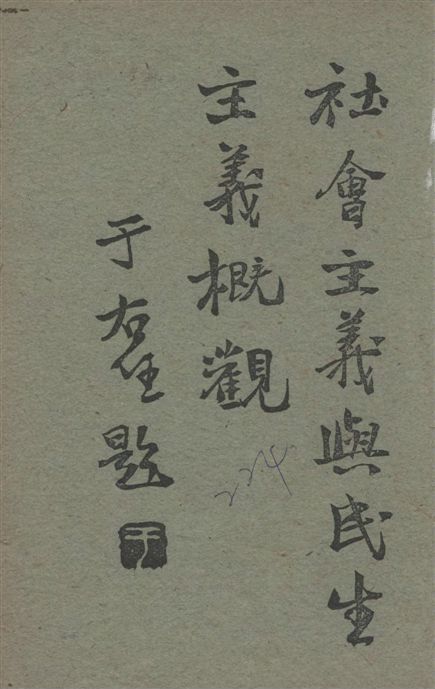 社會主義與民生
主義概觀
于右任題
于
224